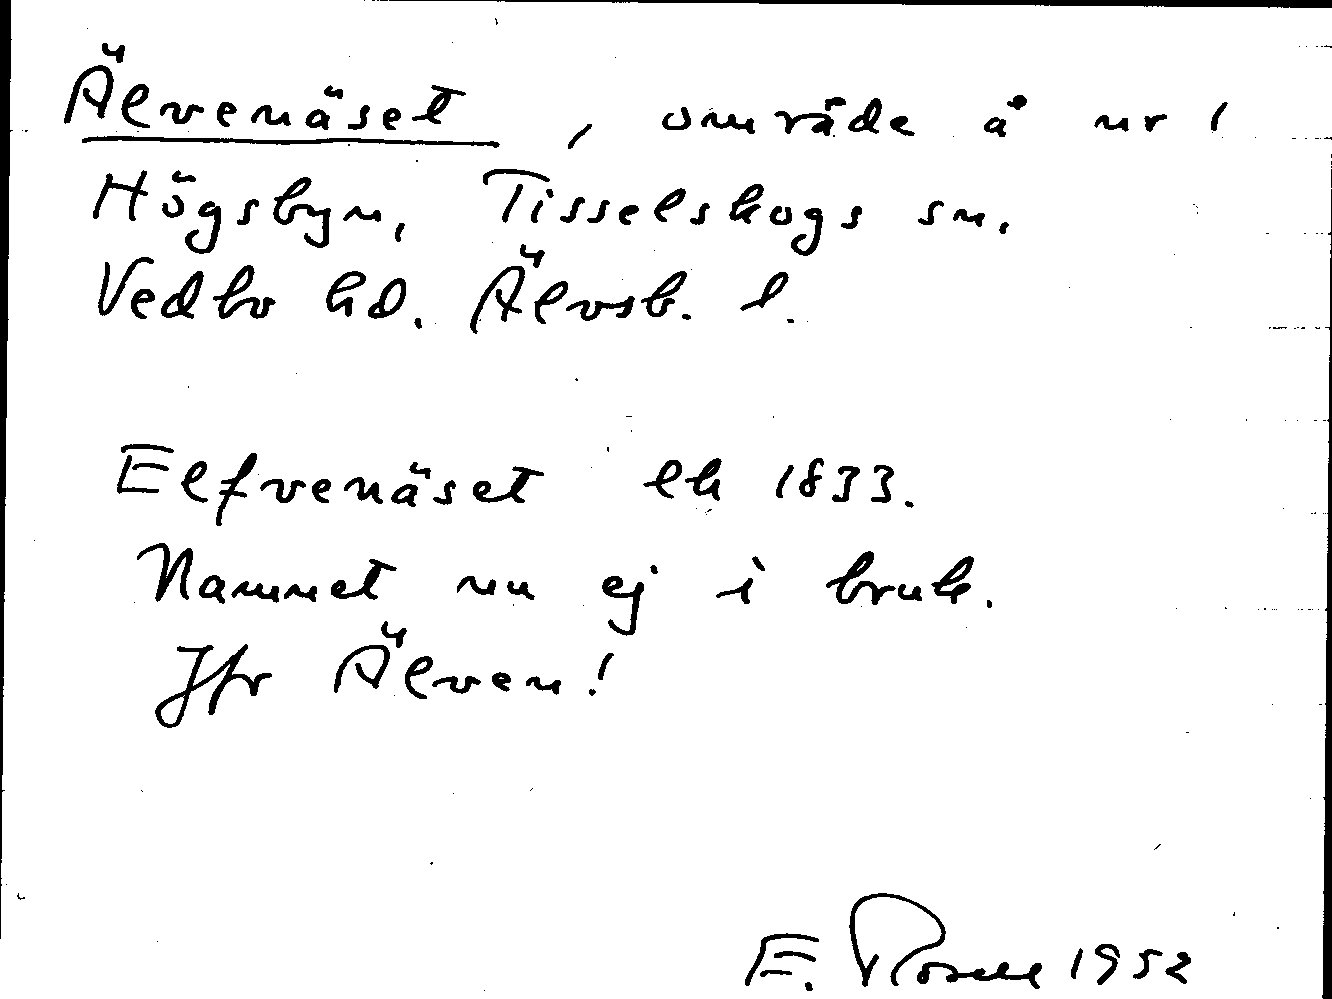 Älvenäset, område å nr 1
Högsbyn, Tisselskogs sn.
Vedbo hd. Älvsb. l.
Elfvenäset lh 1833.
Namnet nu ej i bruk.
Jfr Älven!
E. Rosell 1952